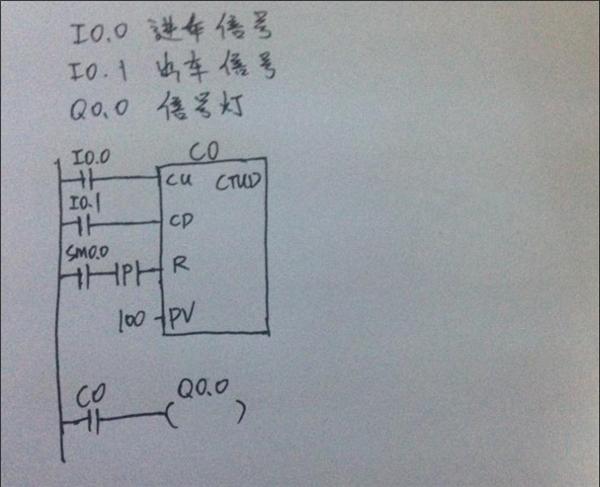 I0.0 进车信号
I0.1 出车信号
Q0.0 信号灯
C0
I0.0
CU CTUD
I0.1
CD
SM0.0
P R
100 PV
C0 Q0.0